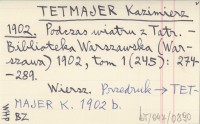 TETMAJER Kazimierz
1902. Podczas wiatru z Tatr. –
Biblioteka Warszawska (War-
szawa) 1902, tom 1 (245): 274
–289.
Wiersz. Przedruk → TET-
MAJER K. 1902 b.
WHP
BZ